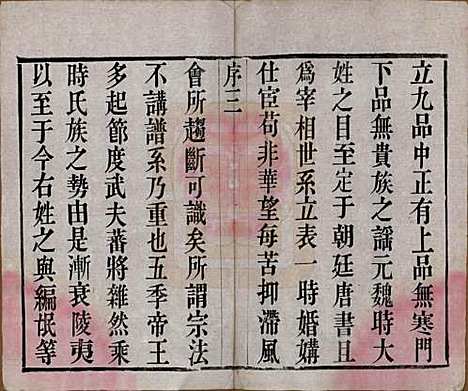 立九品中正有上品無寒門
下品無貴族之謡元魏時大
姓之目至定于朝廷唐書且
爲宰相世系立表一時婚媾
仕宦苟非華望每苦抑滯風
序三
會所趨斷可識矣所謂宗法
不講譜系乃重也五季帝王
多起節度武夫蕃將雜然乘
時氏族之勢由是漸衰陵夷
以至于今右姓之與編氓等